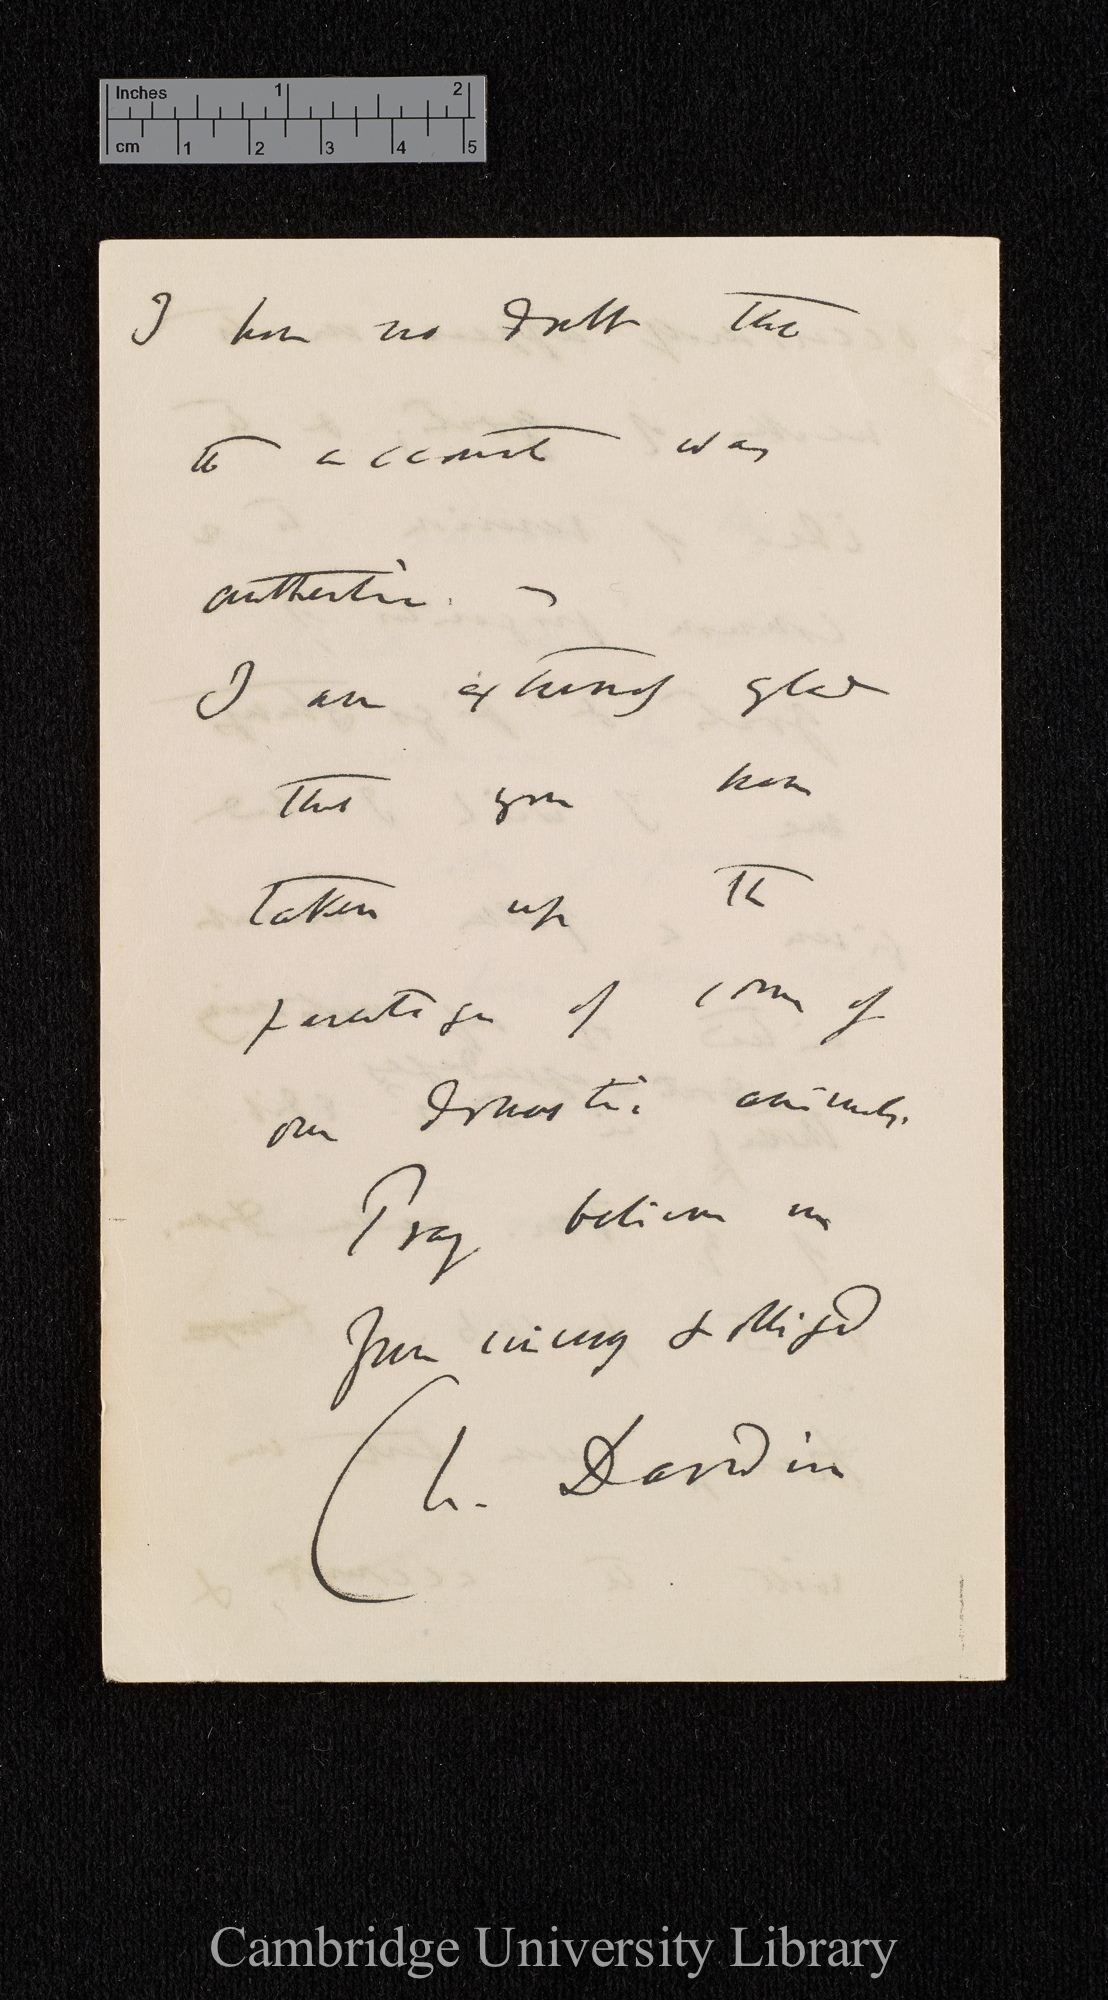 Inches 1 2
cm 1 2 3 4 5
I have no doubt that
the account was
authentic. —
I am extremely glad
that you have
taken up the
parentage of some of
our domestic animals.
Pray believe me
Yours sincerely & obliged
Ch. Darwin
Cambridge University Library